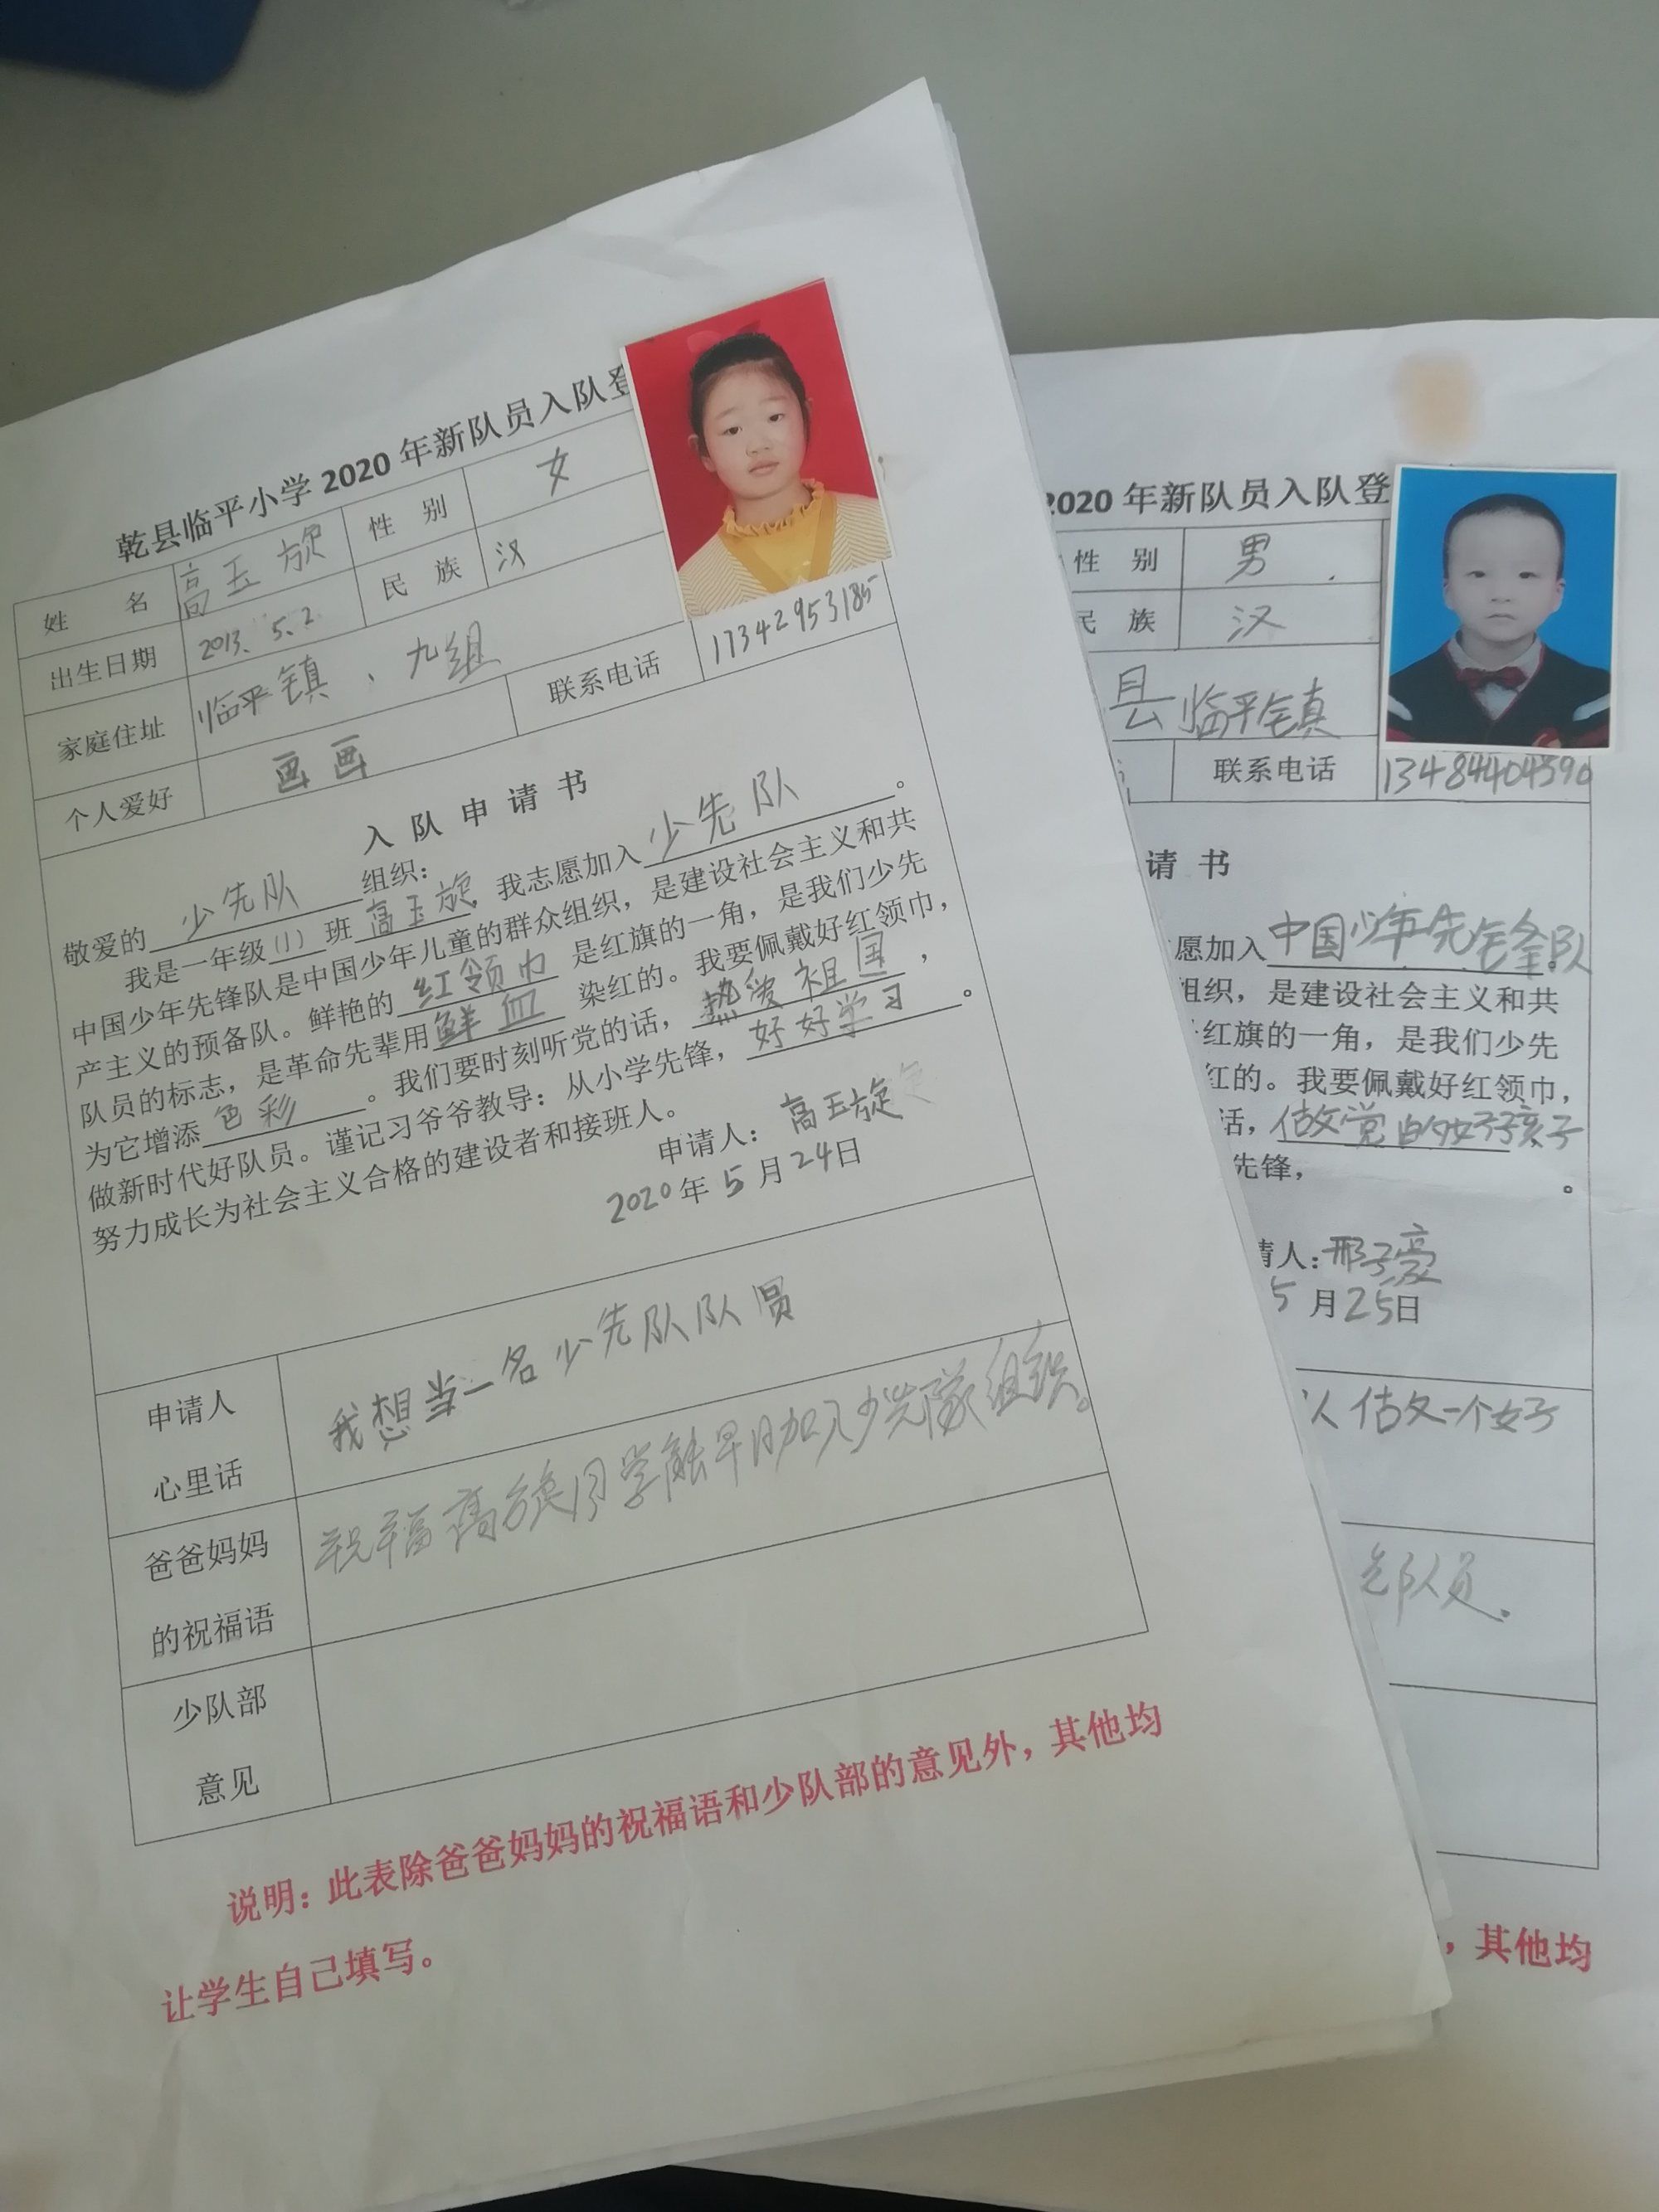 乾县临平小学2020年新队员入队登
姓 名 高玉旋 性 别 女
出生日期 2013.5.2 民 族 汉
家庭住址 临平镇、九组
个人爱好 画画 联系电话 17342953185
入队申请书
敬爱的 少先队 组织：
我是一年级(1)班高玉旋，我志愿加入少先队。
中国少年先锋队是中国少年儿童的群众组织，是建设社会主义和共
产主义的预备队。鲜艳的红领巾是红旗的一角，是我们少先
队员的标志，是革命先辈用鲜血染红的。我要佩戴好红领巾，
为它增添色彩。我们要时刻听党的话，热爱祖国，
做新时代好队员。谨记习爷爷教导：从小学先锋，好好学习。
努力成长为社会主义合格的建设者和接班人。
申请人：高玉旋
2020年5月24日
申请人
心里话
我想当一名少先队队员
爸爸妈妈
的祝福语
祝福高旋同学能早日加入少先隊组织。
少队部
意见
说明：此表除爸爸妈妈的祝福语和少队部的意见外，其他均
让学生自己填写。
2020年新队员入队登
性 别 男
民 族 汉
县临平镇
联系电话 13484404590
请书
愿加入中国少年先锋队
组织，是建设社会主义和共
红旗的一角，是我们少先
红的。我要佩戴好红领巾，
话，做党的好孩子
先锋， 。
请人：邢子豪
5月25日
人 做一个好
队员。
，其他均